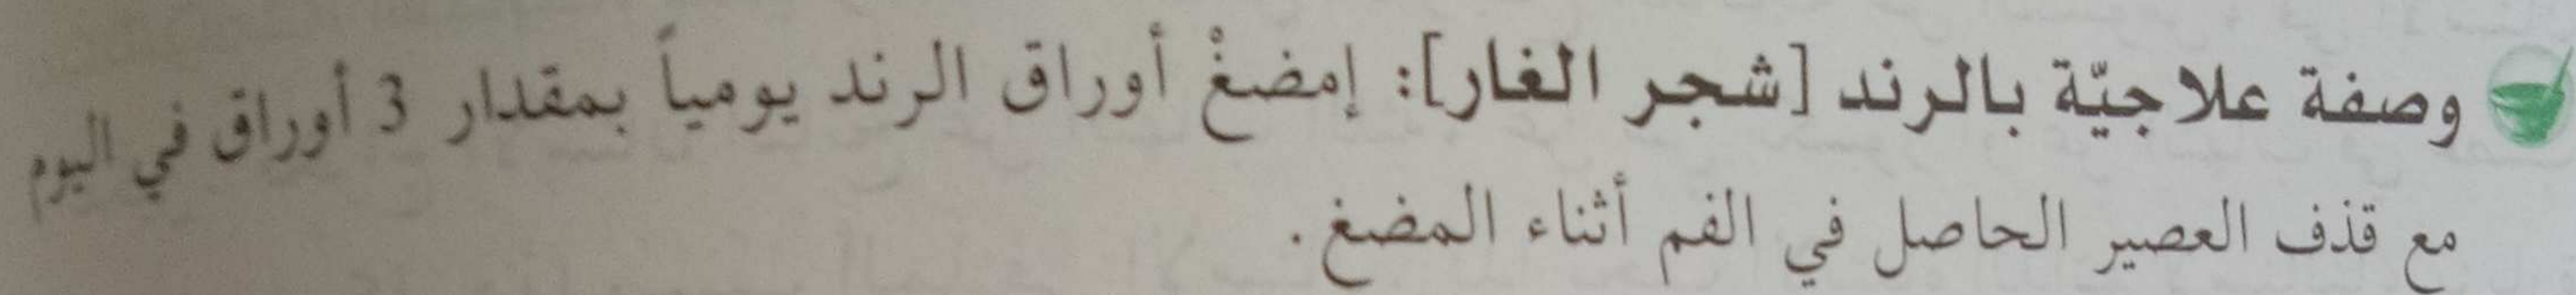 وصفة علاجيّة بالرند [شجر الغار]: إمضغْ أوراق الرند يومياً بمقدار 3 أوراق في اليوم
مع قذف العصير الحاصل في الفم أثناء المضغ.